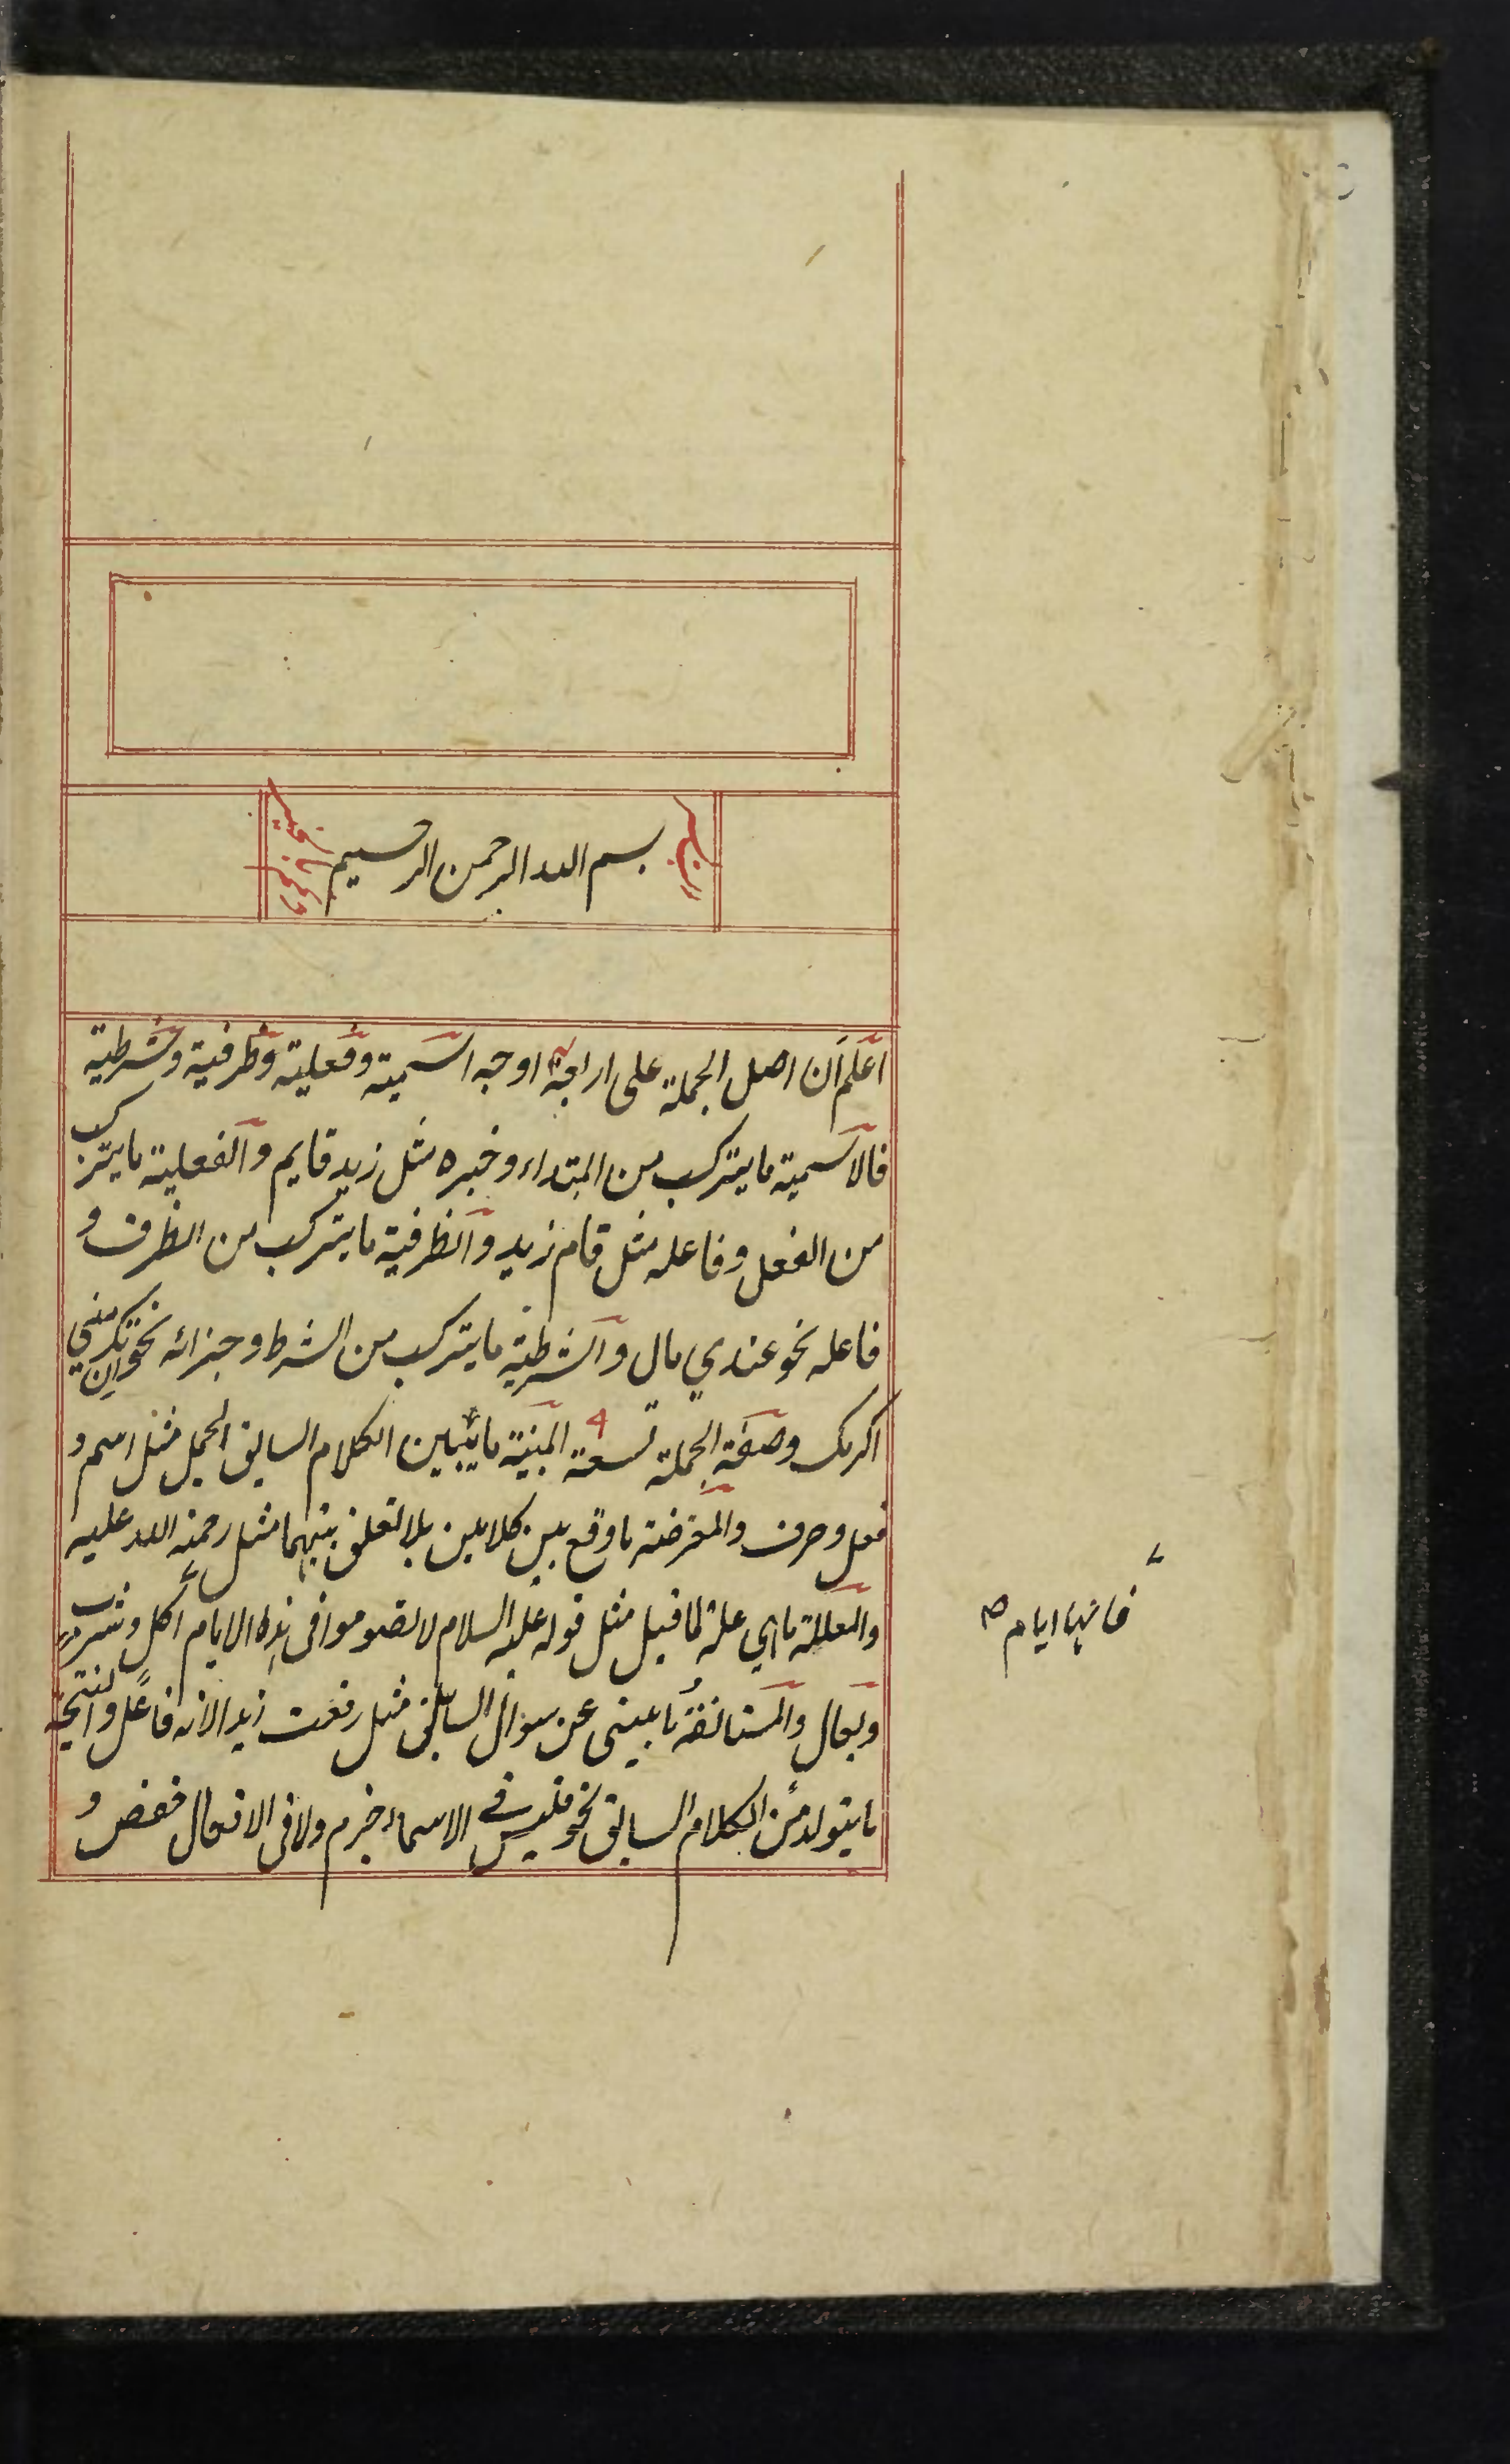 بسم الله الرحمن الرحيم
اعلم ان اصل الجملة على اربعة اوجه اسمية وفعلية وظرفية وشرطية
فالاسمية ما يتركب من المبتداء وخبره مثل زيد قايم والفعلية ما يتركب
من الفعل وفاعله مثل قام زيد والظرفية ما يتركب من الظرف و
فاعله نحو عندي مال والشرطية ما يتركب من الشرط وجزائه نحو ان تكرمني
اكرمك وصفة الجملة تسعة ٩ المبنية ما يتبين الكلام السابق الجمل مثل اسم و
فعل وحرف والمعترضة ما وقع بين كلامين بلا تعلق بينهما مثل رحمة الله عليه
والمعللة ما هي علة لما قبل مثل قوله عليه السلام لا تصوموا في هذه الايام اكل وشرب
فانها ايام صح
وبعال والمستانفة ما يبنى عن سوال السابق مثل رفعت زيد لانه فاعل والنتيجة
ما يتولد من الكلام السابق نحو فليس في الاسماء جزم ولا في الافعال خفض و